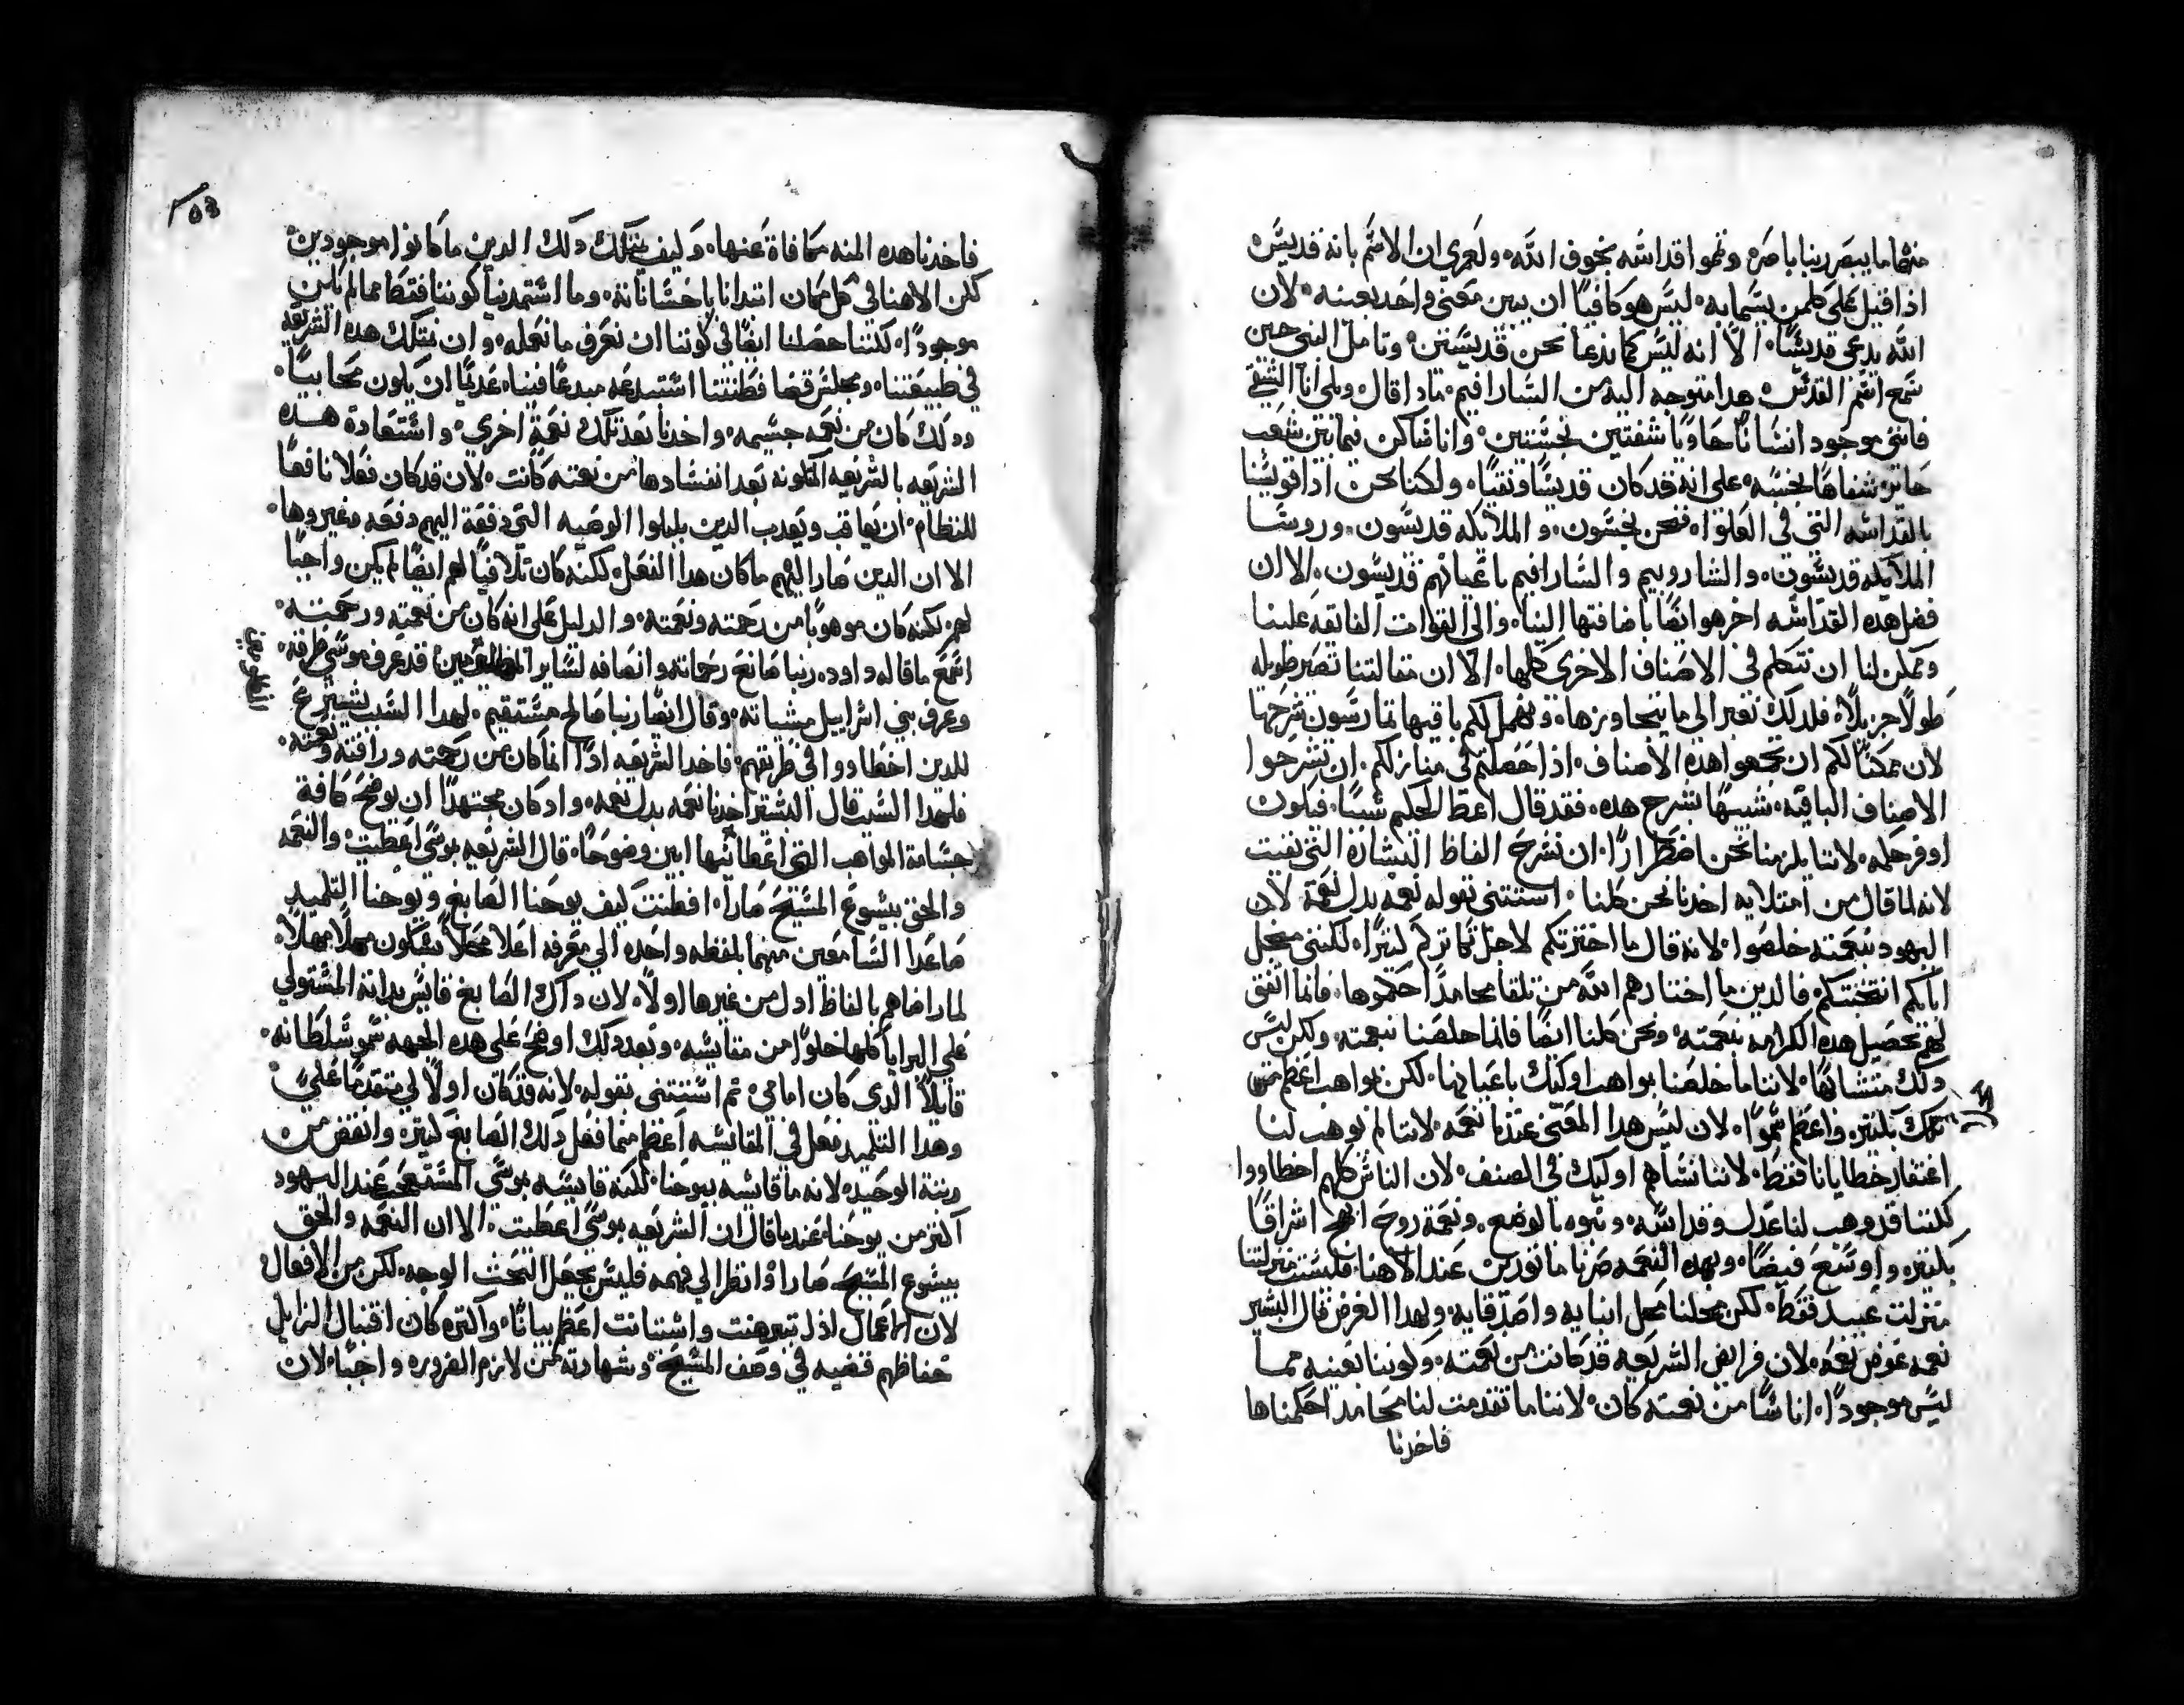 منهما ما يبصر ربنا باصره وتموا قداسه بخوف الله ولعمري ان الاسم بانه قديس
اذا قيل على كلمن يسما به ليس هو كافيًا ان يبين معنى واحد بعينه لان
الله يدعى قديسًا الا انه ليس كما ندعا نحن قديسين وتامل النبي حين
سمع اسم القدس هدا متوجه اليه من السارافيم مادا قال ويلي انا الشقي
فانني موجود انسانًا حاويًا شفتين نجستين وانا ساكن فيما بين شعب
حايز شفاهًا نجسه على انه قد كان قديسًا ونقيًا ولكنا نحن ادا قويسنا
بالقداسه التي في العلو فنحن نجسون والملايكه قديسون وروسا
الملايكه قديسون والشاروبيم والسارافيم باعيانهم قديسون الا ان
فصل هده القداسه اخر هو ايضًا باضافتها الينا والى القوات الفايقه علينا
وممكن لنا ان نتكلم في الاصناف الاخرى كلها الا ان مقالتنا تصير طويله
طولًا جزيلًا فلدلك نعبر الى ما يتجاوزها ونهمل لكم باقيها تمارسون شرحها
لان ممكنًا لكم ان تجمعوا هده الاصناف ادا حصلتم في منازلكم ان تشرحوا
الاصناف الباقيه شبيهًا بشرح هده فقد قال اعط الحكيم سببًا فيكون
اوفر حكمه لاننا يلزمنا نحن اضطرارًا ان نشرح الفاظ البشاره التي بقيت
لانه لما قال من امتلايه اخدنا نحن كلنا استتنى بقوله نعمه بدل نعمه لان
اليهود بنعمته خلصوا لانه قال ما اخترتكم لاجل تكاتركم كتيرًا لكنني من اجل
ابايكم انتخبتكم فالدين ما اختارهم الله من تلقا محامدًا احكموها فانما اتفق
لهم تحصيل هده الكرامه بنعمته ونحن كلنا ايضًا فانما خلصنا بنعمته ولكن ليس
دلك متشابهًا لاننا ما خلصنا بمواهب اوليك باعيانها لكن بمواهب اعظم من
تلك بكتير واعظم سموًا لان ليس هدا المعنى عندنا نعمه لاننا لم يوهب لنا
اغتفار خطايانا فقط لاننا نساهم اوليك في الصنف لان الناس كلهم اخطاووا
لكننا قد وهب لنا عدل وقداسه وبنوه بالوضع ونعمة روح ابهج اشراقًا
بكتير واوسع فيضًا وبهده النعمه صرنا مانورين عند الاهنا فليست منزلتنا
منزلت عبيد فقط لكن محلنا محل ابنايه واصدقايه ولهدا الغرض قال البشير
نعمه عوض نعمه لان فرايض الشريعه قد كانت من نعمته وكوننا بعينه مما
ليس موجودًا اناسًا من نعمته كان لاننا ما تقدمت لنا محامد احكمناها
فاخدنا
فاخدنا هده المنه مكافاة عنها وكيف نمتلك دلك الدين ما كانوا موجودين
لكن الاهنا في كل مكان ابتدانا باحساناته وما استمدينا كوننا فقط مما لم يكن
موجودًا لكننا حصلنا ايضًا في كوننا ان نعرف ما نعمله وان نمتلك هده الشريعه
في طبيعتنا ومجلس قضا فطنتنا استبدعه مبدعًا فينا عديمًا ان يكون محابيًا
ودلك كان من نعمه جسيمه واخدنا بعد تلك نعمةً اخرى واستعادة هده
الشريعه بالشريعه المكتوبه بعد انفسادها من نعمته كانت لان قد كان فعلا نافعًا
للنظام ان يعاقب ويعدب الدين بلبلوا الوصيه التي دفعة اليهم دفعه وغيروها
الا ان الدين صار اليهم ما كان هدا الفعل لكنه كان تلافيًا لهم ايضًا لم يكن واجبًا
لهم لكنه كان موهوبًا من رحمته ونعمته والدليل على انه كان من نعمته ورحمته
اسمع ما قاله داوود ربنا صانع رحماته وانصافه لساير المظلومين قد عرف موسى طرقه
وعرف بني اسراييل مشياته وقال ايضًا ربنا صالح مستقيم لهدا السبب يشترع
للدين اخطاووا في طريقهم فاخد الشريعه ادًا انما كان من رحمته ورافته ونعمته
فلهدا السبب قال البشير اخدنا نعمه بدل نعمه واد كان مجتهدًا ان يوضح كافة
جسامة المواهب التي اعطانيها ابين وضوحًا قال الشريعه بموسى اعطيت والنعمه
والحق بيسوع المسيح صارا افطنت كيف يوحنا الصابغ ويوحنا التلميد
صاعدا السامعين منهما بلفظه واحده الى معرفه اعلا محلًا يسلكون مهلًا مهلًا
لما راضاهم بالفاظ ادل من غيرها اولًا لان داك الصابغ قايس بدانه المستولي
على البرايا كلها خلوًا من مقايسه وبعد دلك اوضح على هده الجهه سمو سلطانه
قايلًا الدي كان امامي تم استتنى بقوله لانه قد كان اولًا لي متقدمًا علي
وهدا التلميد فعل في المقايسه اعظم مما فعل دلك الصابغ كتير وانقص من
رتبة الوحيد لانه ما قايسه بيوحنا لكنه قايسه بموسى المستعجب عند اليهود
اكتر من يوحنا عندما قال ان الشريعه بموسى اعطيت الا ان النعمه والحق
بيسوع المسيح صارا وانظر الى فهمه فليس يجعل البحث الوجه لكن من الافعال
لان الاعمال اد تبرهنت واستبانت اعظم بيانًا واكتر كان اقتبال الزايل
حفاظهم قضيه في وصف المسيح وشهادته من لازم الضروره واجبًا لان